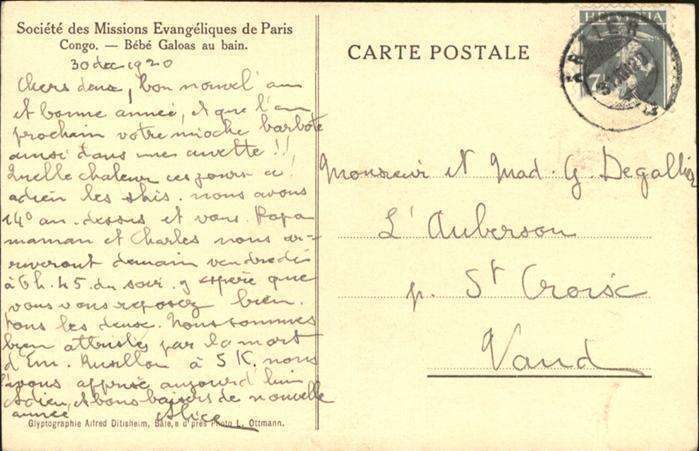 Société des Missions Evangéliques de Paris
Congo. — Bébé Galoas au bain.
30 dec 1920
Chers deux, bon nouvel an
et bonne année, et que l'an
prochain votre mioche barbote
aussi dans une cuvette !!
Quelle chaleur ces jours-ci
adieu les skis. nous avons
14° au-dessus et vous. Papa
maman et Charles nous ar-
riveront demain vendredi
à 6 h. 45 du soir. J'espère que
vous vous reposez bien.
tous les deux. Nous sommes
bien attristés par la mort
d'Em. Rusillon à 5 K. nous
l'avons apprise aujourd'hui
Adieu, et bons baisers de nouvelle
année Alice
Glyptographie Alfred Ditisheim, Bâle, d'près Photo L. Ottmann.
CARTE POSTALE
HELVETIA
7½
Monsieur et Mad. G. Degallier
L'Auberson
p. St Croix
Vaud